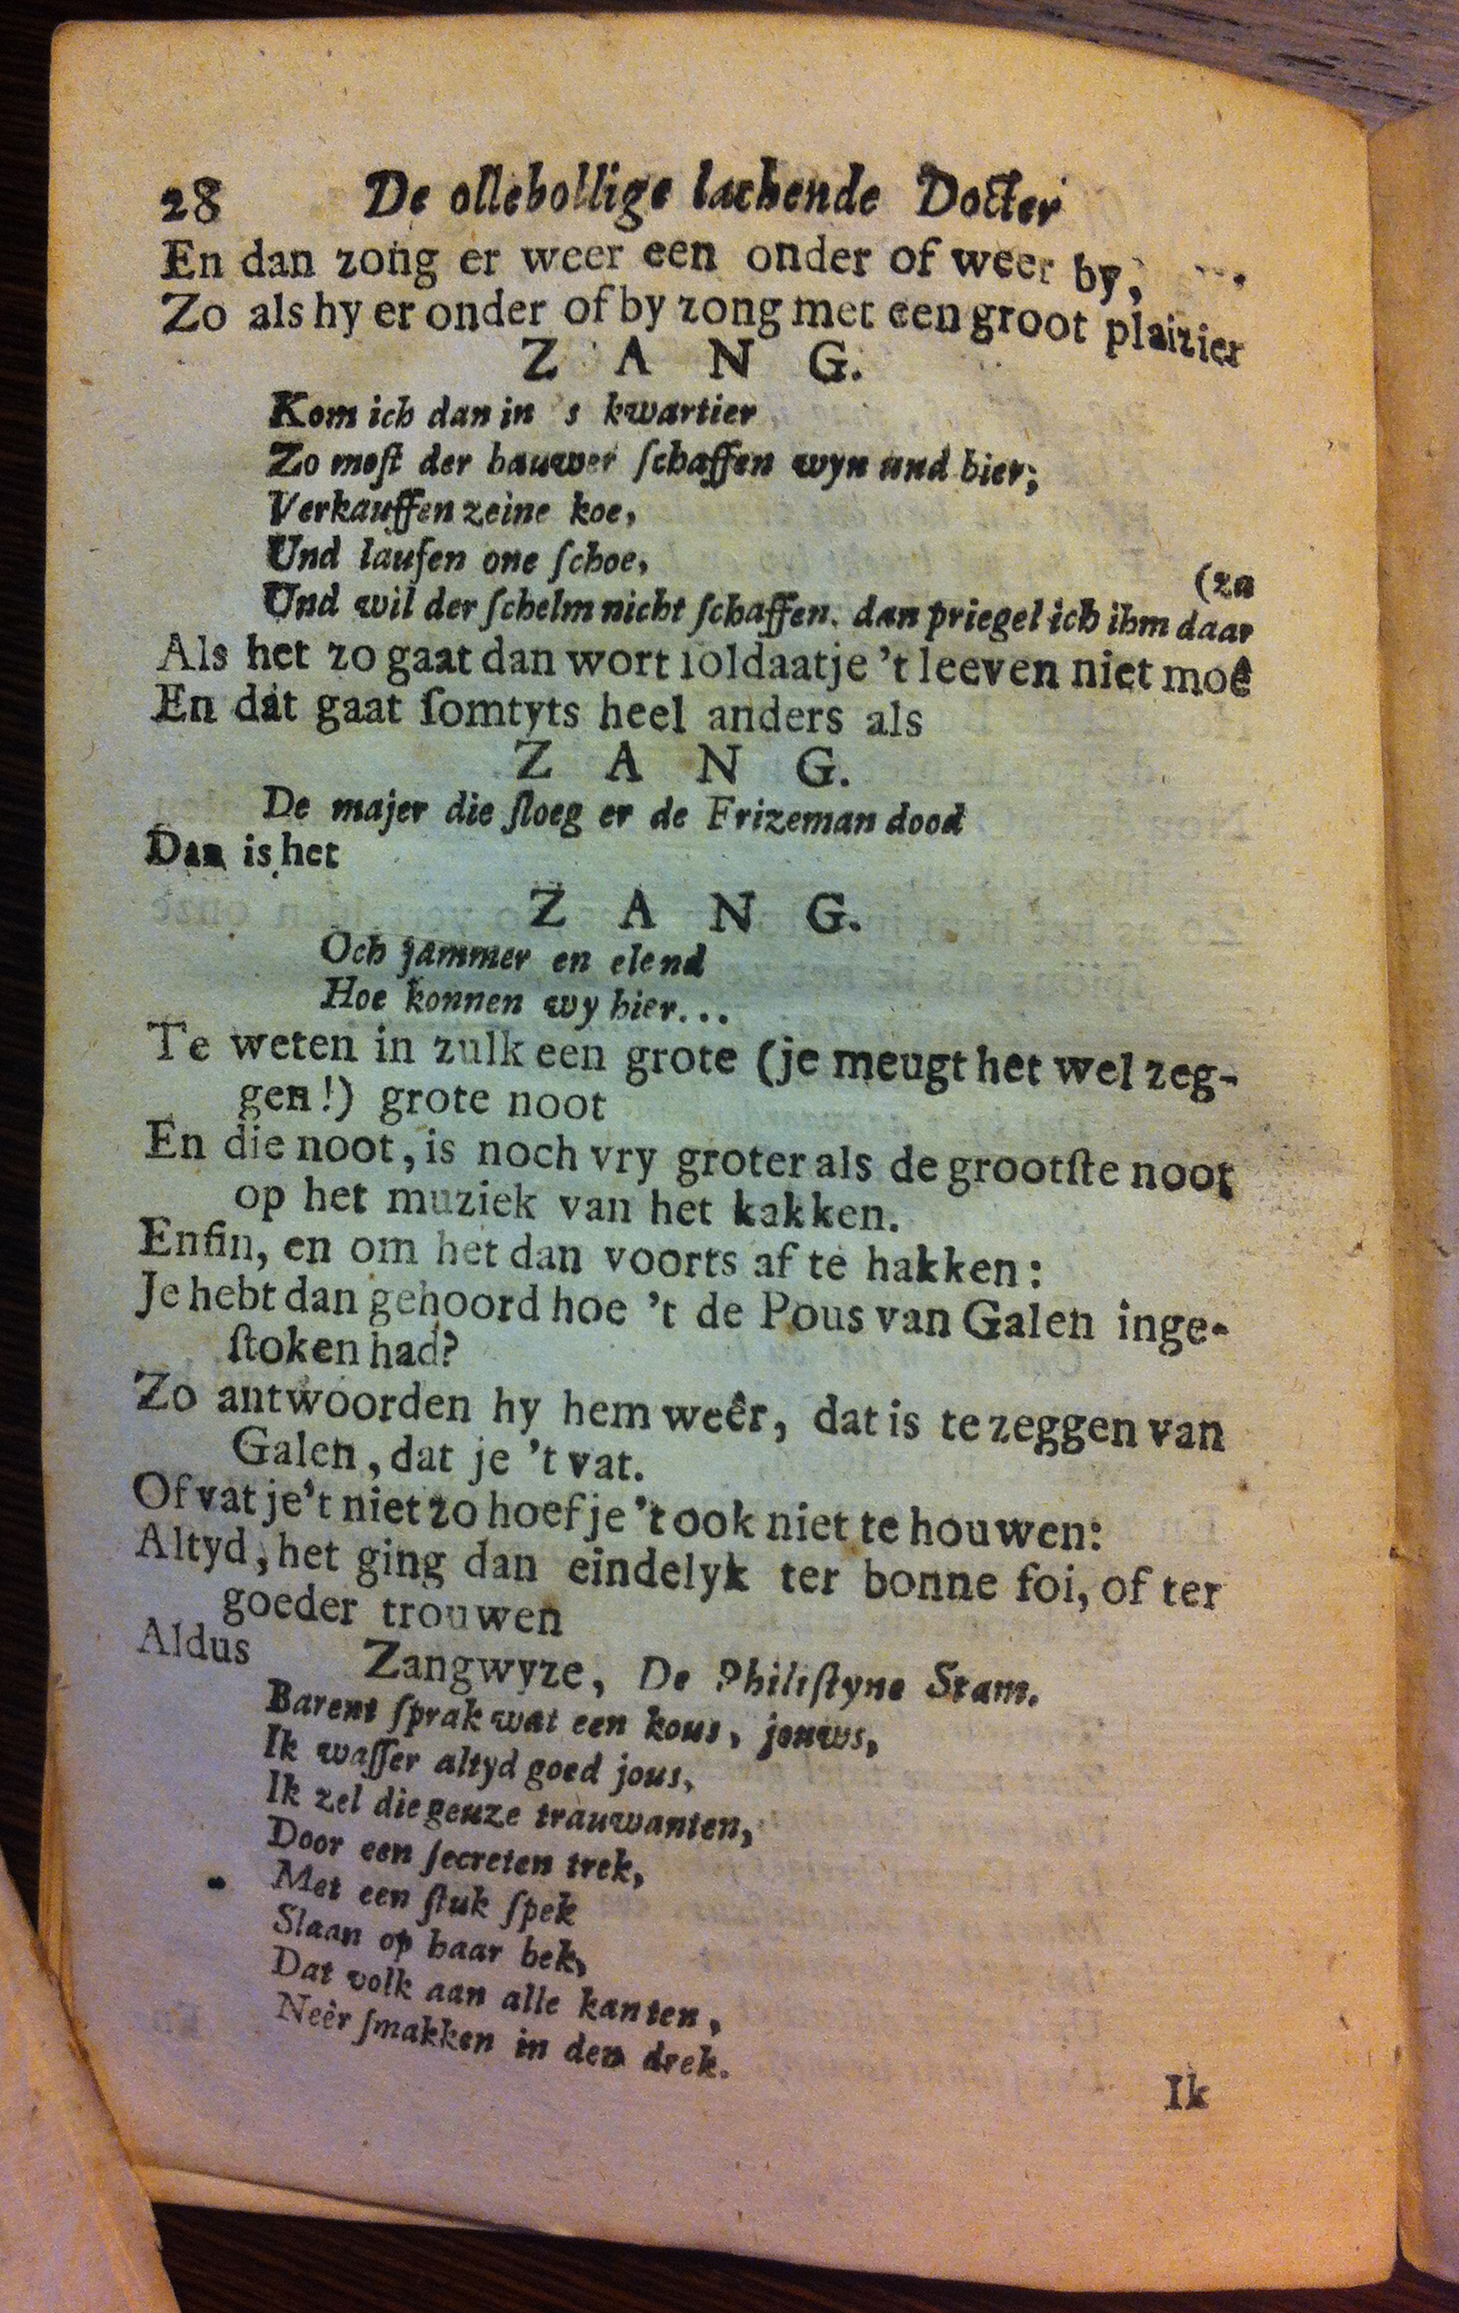 28 De ollebollige lachende Docter
En dan zong er weer een onder of weer by,
Zo als hy er onder of by zong met een groot plaizier
Z A N G.
Kom ich dan in 's kwartier
Zo most der bauwer ſchaffen wyn und bier;
Verkauffen zeine koe,
Und laufen one ſchoe,
(za
Und wil der ſchelm nicht ſchaffen. dan priegel ich ihm daar
Als het zo gaat dan wort ſoldaatje 't leeven niet moê
En dat gaat ſomtyts heel anders als
Z A N G.
De majer die ſloeg er de Frizeman dood
Dan is het
Z A N G.
Och jammer en elend
Hoe konnen wy hier...
Te weten in zulk een grote (je meugt het wel zeg-
gen!) grote noot
En die noot, is noch vry groter als de grootſte noot
op het muziek van het kakken.
Enfin, en om het dan voorts af te hakken:
Je hebt dan gehoord hoe 't de Pous van Galen inge-
ſtoken had?
Zo antwoorden hy hem weêr, dat is te zeggen van
Galen, dat je 't vat.
Of vat je't niet zo hoef je 't ook niet te houwen:
Altyd, het ging dan eindelyk ter bonne foi, of ter
goeder trouwen
Aldus Zangwyze, De Philiſtyne Stam.
Barent ſprak wat een kous, jouws,
Ik waſſer altyd goed jous,
Ik zel die geuze trauwanten,
Door een ſecreten trek,
Met een ſtuk ſpek
Slaan op haar bek,
Dat volk aan alle kanten,
Neêr ſmakken in den drek.
Ik